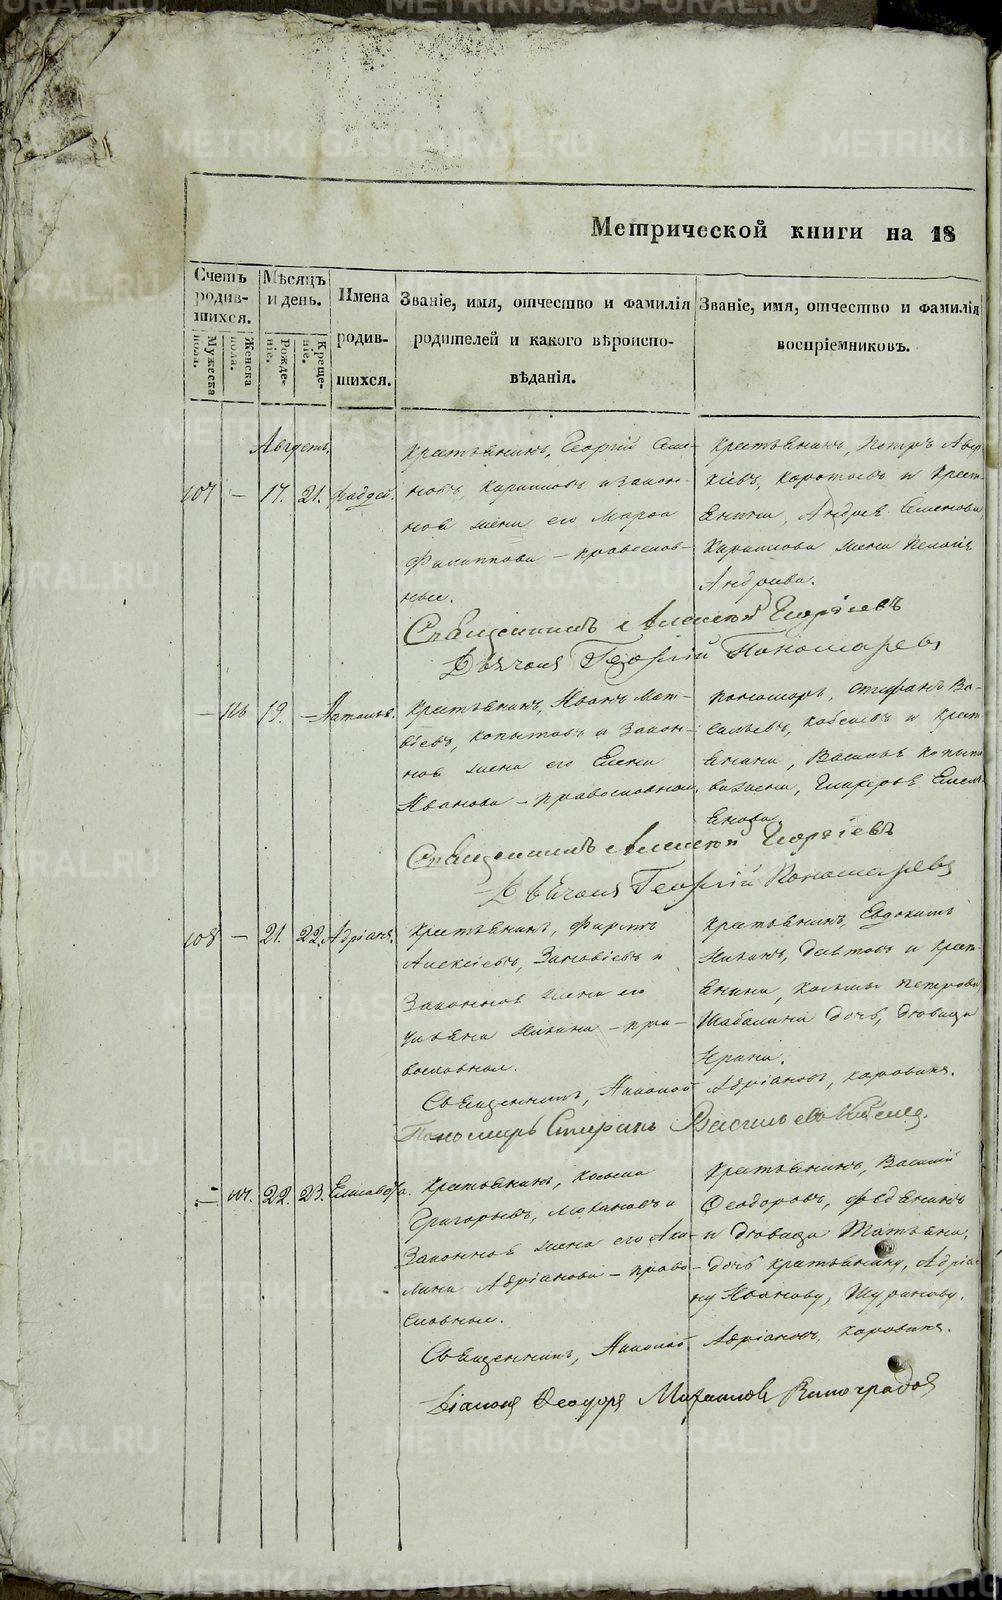 METRIKI.GASO-URAL.RU
Метрической книги на 18
Счетъ родив-шихся.
Мужеска пола.
Женска пола.
Мѣсяцъ и день.
Рожде-ніе.
Креще-ніе.
Имена родив-шихся.
Званіе, имя, отчество и фамилія родителей и какого вѣроиспо-вѣданія.
Званіе, имя, отчество и фамилія воспріемниковъ.
Августъ.
107 — 17. 21. Фаддей.
Крестьянинъ, Георгій Семе-
новъ, Кирилловъ и закон-
ная жена его Марѳа
Филиппова — православ-
ные.
Крестьянинъ, Петръ Авер-
кіевъ, и крест-
янина, Андрея Семенова
Кириллова жена
Андреева.
Священникъ Алексій Георгіевъ
Дьячокъ Георгій Пономаревъ
— 19. — Наталья.
Крестьянинъ, Иванъ Мат-
вѣевъ, Копытовъ и закон-
ная жена его Елена
Иванова — православные.
Пономарь, Стефанъ Ва-
сильевъ, и крест-
янина, Василья Копыто-
ва жена, Гликерья Емель-
янова.
Священникъ Алексій Георгіевъ
Дьячокъ Георгій Пономаревъ
108 — 21. 22. Адріанъ.
Крестьянинъ, Фирсъ
Алексѣевъ, Зиновіевъ и
законная жена его
Ульяна — пра-
вославные.
Крестьянинъ, Евдокимъ
и крест-
янина, Козьмы Петрова
Шабалина дочь, дѣвица
Ирина.
Священникъ, Николай Адріановъ, Коровинъ.
Пономарь Стефанъ Васильевъ
— 107. 22. 23. Елисавета.
Крестьянинъ, Косьма
Григорьевъ, и
законная жена его Аку-
лина Адріанова — право-
славные.
Крестьянинъ, Василій
Ѳеодоровъ,
и дѣвица Татьяна,
дочь крестьянину, Адріа-
ну Иванову,
Священникъ, Николай Адріановъ, Коровинъ.
Діаконъ Ѳеодоръ Михайловъ Виноградовъ